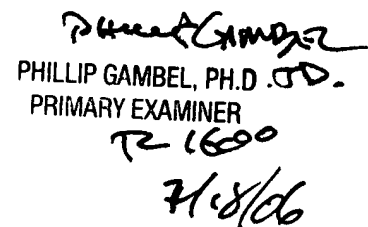 Phillip Gambel
PHILLIP GAMBEL, PH.D. JD.
PRIMARY EXAMINER
TC 1600
7/18/06